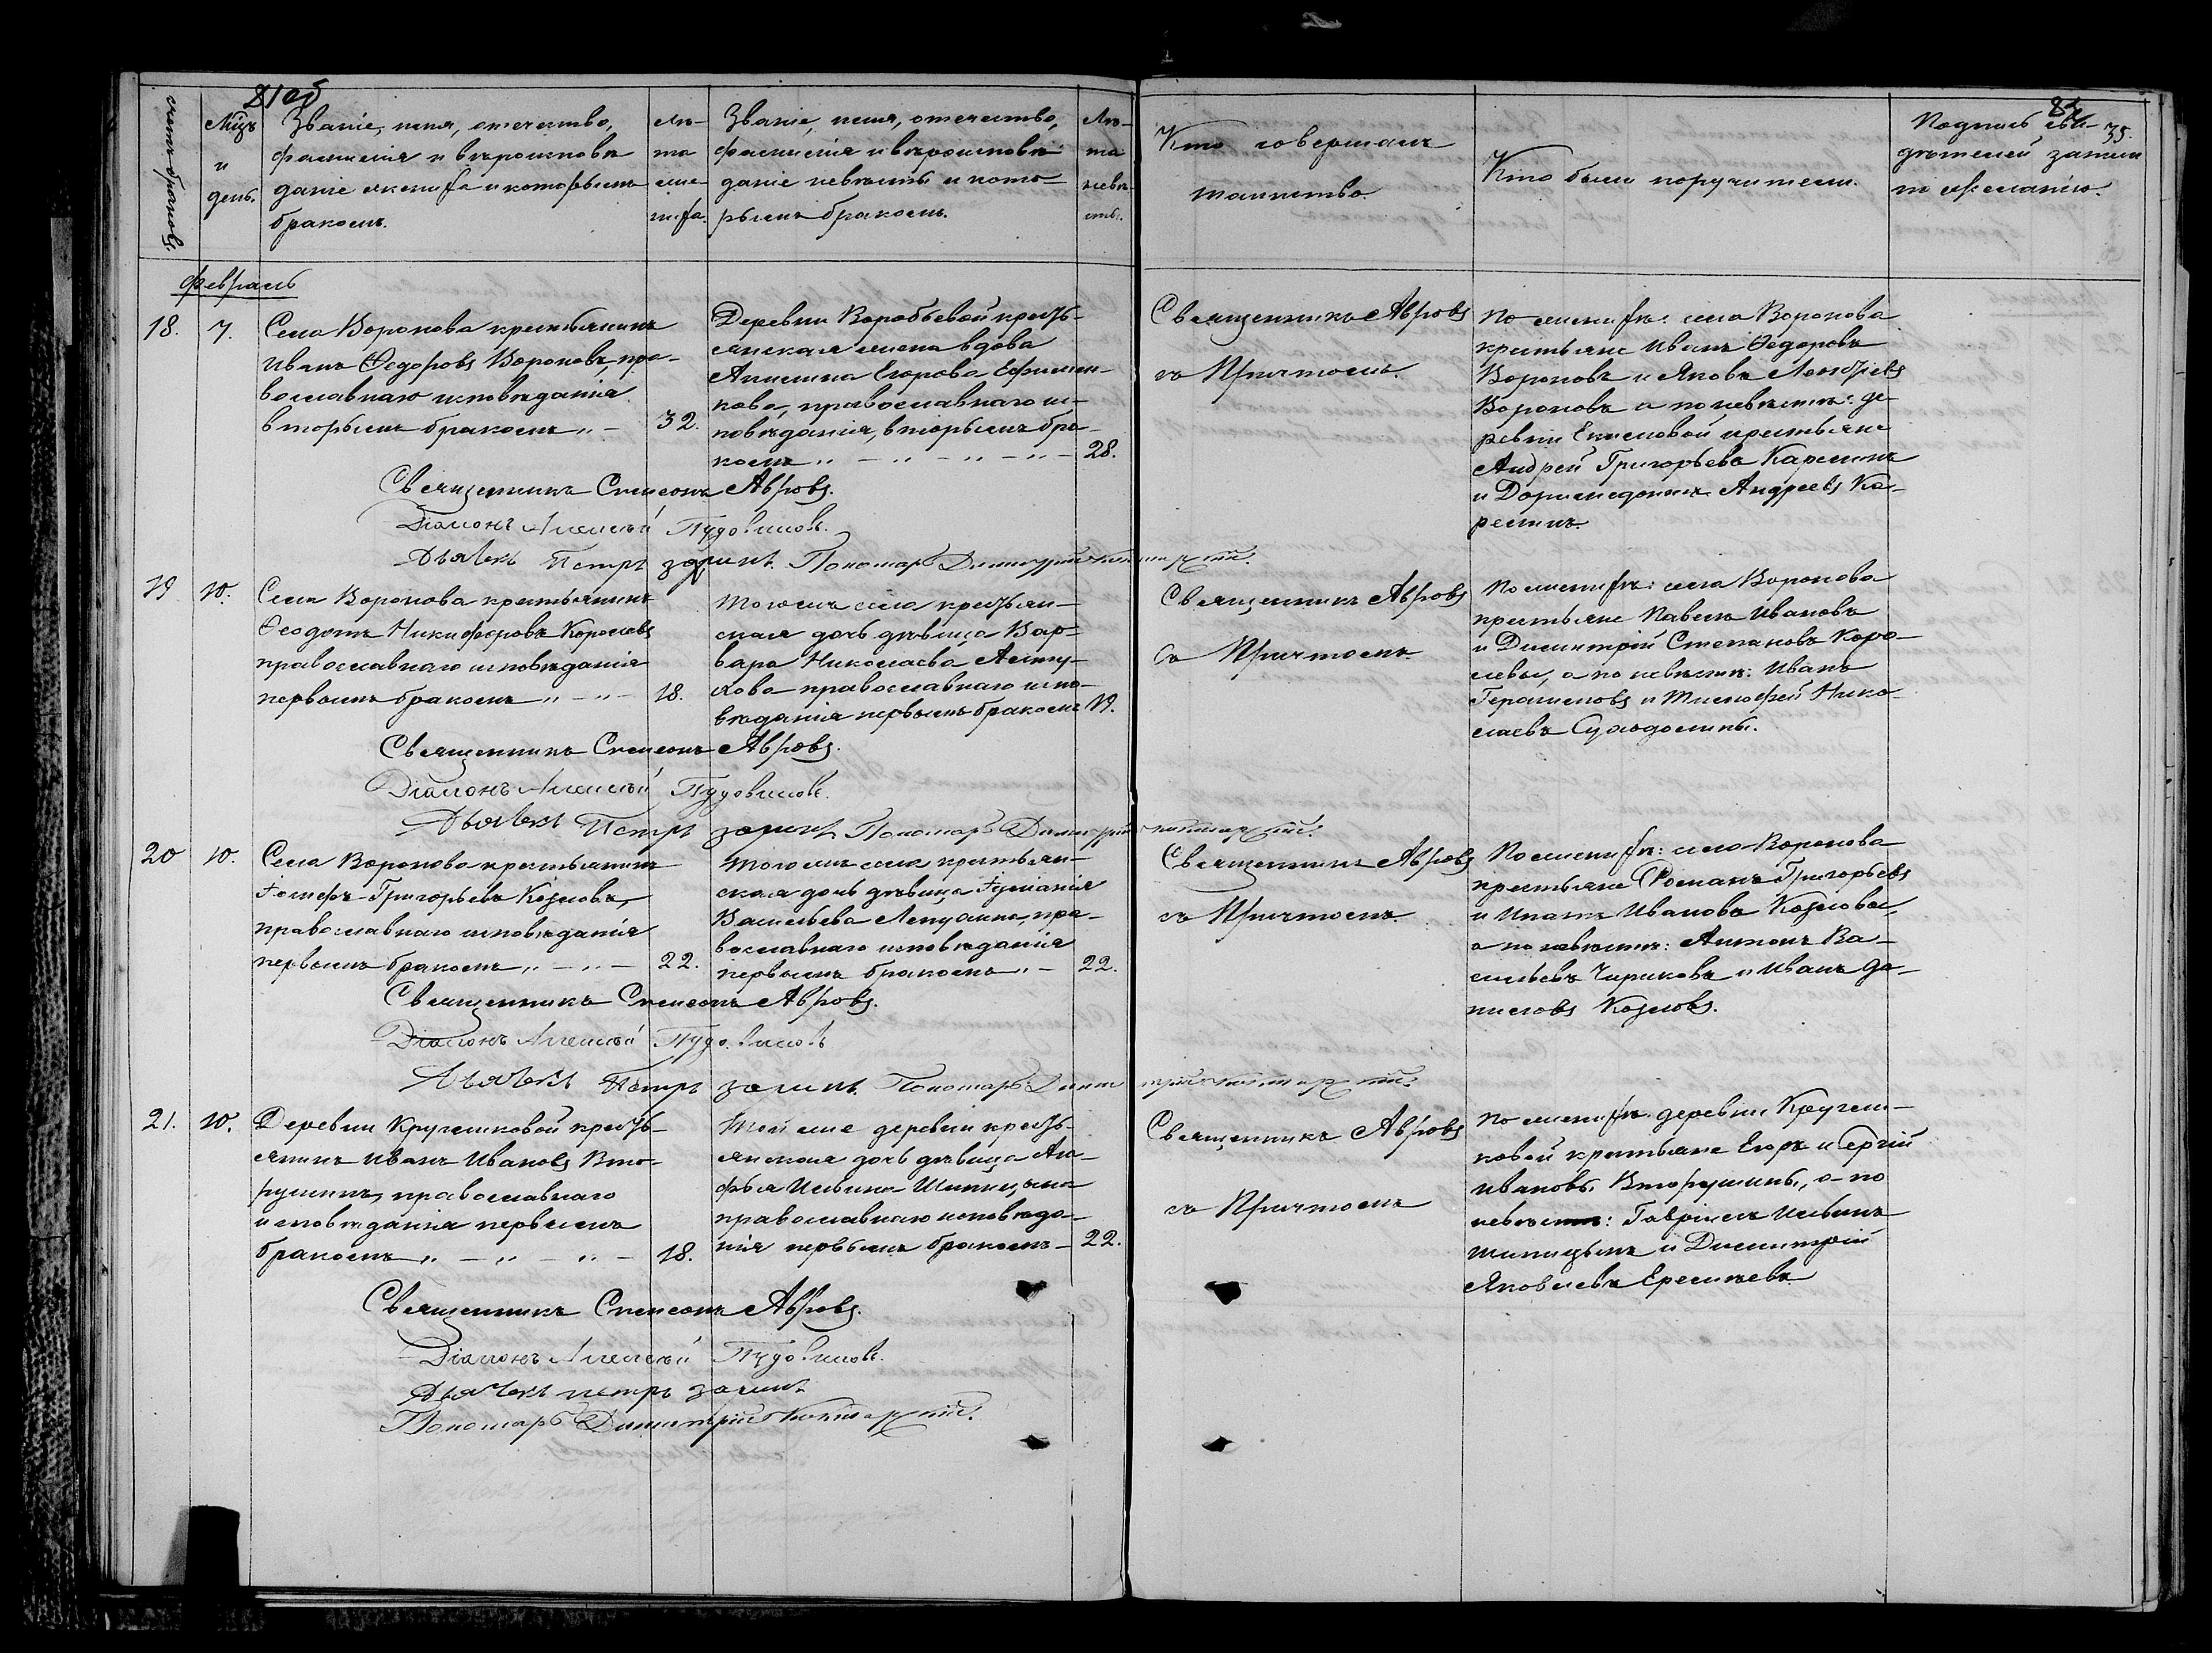 81об
82
35.
счетъ браковъ.
Мцъ
и
день.
Званіе, имя, отечество,
фамилія и вѣроисповѣ
даніе жениха и которымъ
бракомъ.
Лѣ-
та
же-
ниха.
Званіе, имя, отечество,
фамилія и вѣроисповѣ
даніе невѣсты и кото-
рымъ бракомъ.
Лѣ-
та
невѣ-
сты.
Кто совершалъ
таинство.
Кто были поручители.
Подпись сви-
дѣтелей записи
по желанію.
Февраль
18.
7.
Села Воронова крестьянинъ
Иванъ Ѳедоровъ Вороновъ, пра-
вославнаго исповѣданія
вторымъ бракомъ „ —
32.
Деревни Воробьевой кресть-
янская жена вдова
Акилина Егорова Ефимен-
кова, православнаго ис-
повѣданія, вторымъ бра-
комъ „ — „ — „ — „ —
28.
Священникъ Авровъ
съ Причтомъ.
По женихѣ: села Воронова
крестьяне Иванъ Ѳедоровъ
Вороновъ и Яковъ Леонтьевъ
Вороновъ а по невѣстѣ: де-
ревни Екимовой крестьяне
Андрей Григорьевъ Карелинъ
и Доримедонтъ Андреевъ Ка-
релинъ.
Священникъ Симеонъ Авровъ.
Діаконъ Алексѣй Пудовиковъ.
Дьячекъ Петръ Зоринъ. Пономарь Димитрій
19
10.
Села Воронова крестьянинъ
Ѳеодотъ Никифоровъ Королевъ
православнаго исповѣданія
первымъ бракомъ „ — „ —
18.
Тогожъ села крестьян-
ская дочь дѣвица Вар-
вара Николаева
православнаго испо-
вѣданія первымъ бракомъ
19.
Священникъ Авровъ
съ Причтомъ.
По женихѣ: села Воронова
крестьяне Павелъ Ивановъ
и Димитрій Степановъ Коро-
левы, а по невѣстѣ: Иванъ
Герасимовъ и Тимофей Нико-
лаевъ Суходолины.
Священникъ Симеонъ Авровъ.
Діаконъ Алексѣй Пудовиковъ.
Дьячекъ Петръ Зоринъ Пономарь Димитрій
20
10.
Села Воронова крестьянинъ
Іосифъ Григорьевъ Козловъ,
православнаго исповѣданія
первымъ бракомъ „ — „ —
22.
Тогожъ села крестьян-
ская дочь дѣвица Іуліанія
Васильева пра-
вославнаго исповѣданія
первымъ бракомъ „ —
22.
Священникъ Авровъ
съ Причтомъ.
По женихѣ: села Воронова
крестьяне Романъ Григорьевъ
и Ипатъ Ивановъ Козловы,
а по невѣстѣ: Антонъ Ва-
сильевъ Чириковъ и Иванъ Да-
ниловъ Козловъ.
Священникъ Симеонъ Авровъ.
Діаконъ Алексѣй Пудовиковъ
Дьячекъ Петръ Зоринъ. Пономарь Димитрій
21.
10.
Деревни Кругликовой кресть-
янинъ Иванъ Ивановъ Вто-
рушинъ, православнаго
исповѣданія первымъ
бракомъ „ — „ — „ —
18.
Той же деревни кресть-
янская дочь дѣвица Ага-
фья Ильина Шипицына
православнаго исповѣда-
нія первымъ бракомъ —
22.
Священникъ Авровъ
съ Причтомъ
По женихѣ деревни Кругли-
ковой крестьяне Егоръ и Сергій
Ивановы Вторушины, а по
невѣстѣ: Гавріилъ Ильинъ
Шипицынъ и Димитрій
Яковлевъ Еремѣевъ
Священникъ Симеонъ Авровъ.
Діаконъ Алексѣй Пудовиковъ.
Дьячекъ Петръ Зоринъ
Пономарь Димитрій